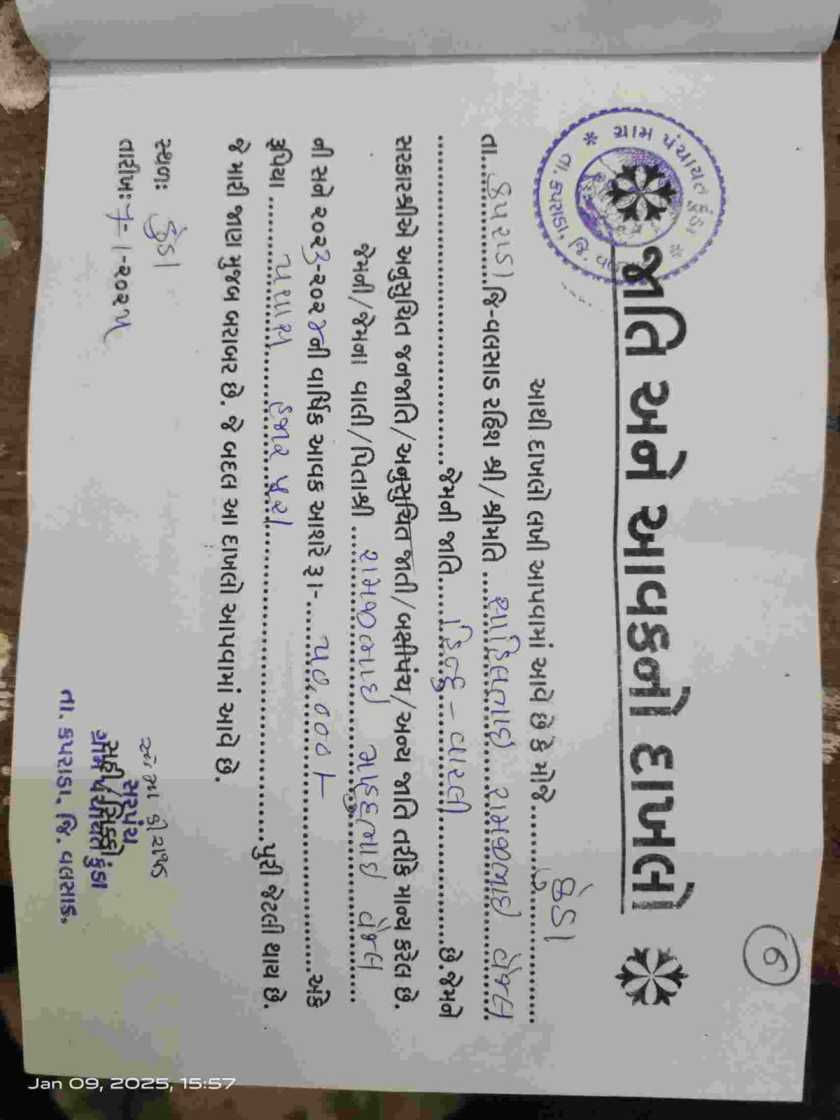 ૬
જાતિ અને આવકનો દાખલો
ગ્રામ પંચાયત કુંડા
તા. કપરાડા
આથી દાખલો લખી આપવામાં આવે છે કે મોજે કુંડા
તા. કપરાડા જિ-વલસાડ રહિશ શ્રી/શ્રીમતિ શામજીભાઇ વેજલ
જેમની જાતિ હિન્દુ - વારલી છે.જેમને
સરકારશ્રીએ અનુસુચિત જનજાતિ/અનુસુચિત જાતી/બક્ષીપંચ/અન્ય જાતિ તરીકે માન્ય કરેલ છે.
જેમની/જેમના વાલી/પિતાશ્રી શામજીભાઇ માહદુભાઇ વેજલ
ની સને ૨૦૨૩-૨૦૨૪ની વાર્ષિક આવક આશરે રૂા.- ૫૦,૦૦૦/- અંકે
રૂપિયા પચાસ હજાર પુરા પુરી જેટલી થાય છે.
જે મારી જાણ મુજબ બરાબર છે. જે બદલ આ દાખલો આપવામાં આવે છે.
સ્થળઃ કુંડા
તારીખઃ 7-૧-૨૦૨૫
સરપંચ
સહી/સિક્કો
ગ્રામ પંચાયત કુંડા
તા. કપરાડા. જિ. વલસાડ.
Jan 09, 2025, 15:57